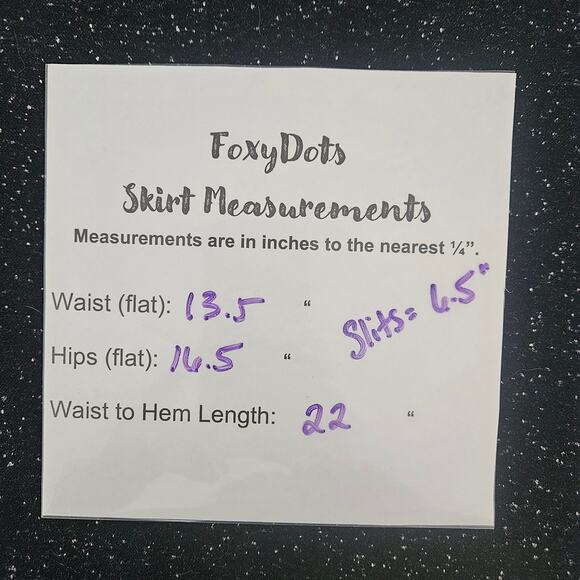 FoxyDots
Skirt Measurements
Measurements are in inches to the nearest ¼”.
Waist (flat): 13.5 “
Slits= 6.5"
Hips (flat): 16.5 “
Waist to Hem Length: 22 “